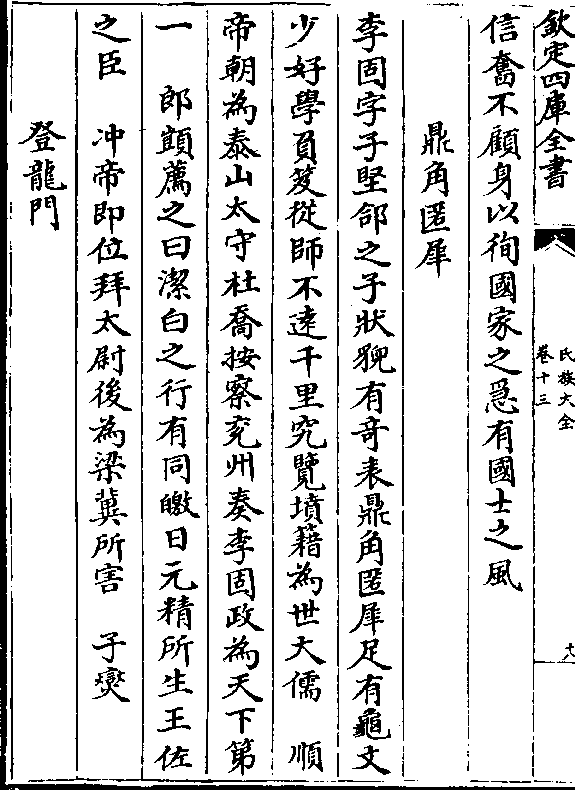 欽定四庫全書
氏族大全
卷十三
十八
信奮不顧身以徇國家之急有國士之風
鼎角匿犀
李固字子堅郃之子狀貌有奇表鼎角匿犀足有龜文
少好學負笈從師不遠千里究覽墳籍為世大儒　順
帝朝為泰山太守杜喬按察兖州奏李固政為天下第
一　郎顗薦之曰潔白之行有同皦日元精所生王佐
之臣　冲帝即位拜太尉後為梁冀所害　子燮
登龍門